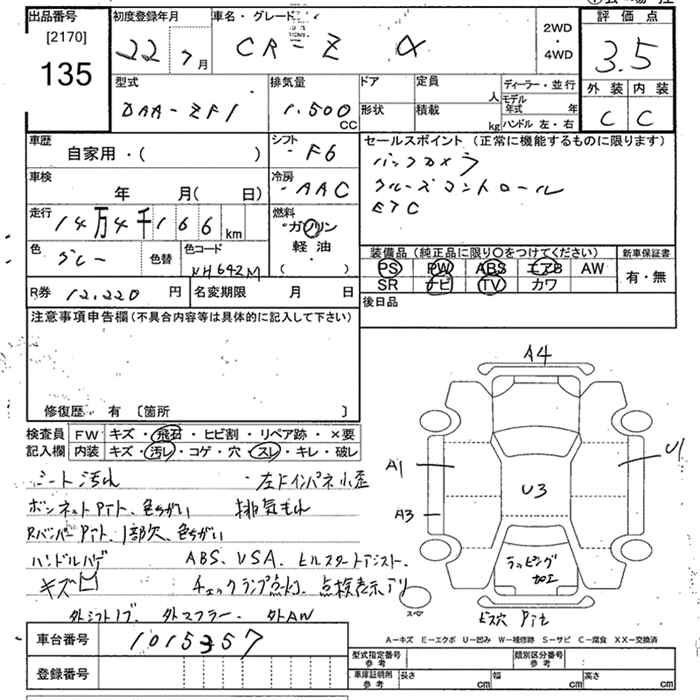 出品番号
[2170]
135
初度登録年月
22 7月
車名・グレード
CR-Z α
2WD
・
4WD
評価点
3.5
外装 内装
C C
型式
DAA-ZF1
排気量
1.500
CC
ドア
形状
定員
人
積載
kg
ディーラー・並行
モデル年式 年
ハンドル 左・右
車歴
自家用・( )
シフト
F6
車検
年 月( 日)
冷房
AAC
走行
14万4千166km
燃料
ガソリン
軽油
( )
色
グレー
色替
色コード
NH642M
セールスポイント(正常に機能するものに限ります)
バックカメラ
クルーズコントロール
ETC
装備品(純正品に限り〇をつけてください)
PS PW ABS エアB AW
SR ナビ TV カワ
新車保証書
有・無
R券 12.220 円
名変期限 月 日
後日品
注意事項申告欄(不具合内容等は具体的に記入して下さい)
修復歴 有 [箇所 ]
検査員記入欄
FW キズ・飛石・ヒビ割・リペア跡・×要
内装 キズ・汚レ・コゲ・穴・スレ・キレ・破レ
シート汚れ
左ドインパネ小歪
ボンネットPナト、色ちがい 排気もれ
RバンパーPナト、1部欠、色ちがい
ハンドルハゲ ABS、VSA、ヒルスタートアシスト.
キズ凹 チェックランプ点灯、点検表示アリ
外シフトノブ、外マフラー、外AW
A4
A1
U1
A3
U3
ラッピング
加工
スペア
ビス穴 Pナト
A-キズ E-エクボ U-凹み W-補修跡 S-サビ C-腐食 XX-交換済
車台番号
1015357
登録番号
型式指定番号
参考
類別区分番号
参考
車庫証明用
参考
長さ cm
幅 cm
高さ cm